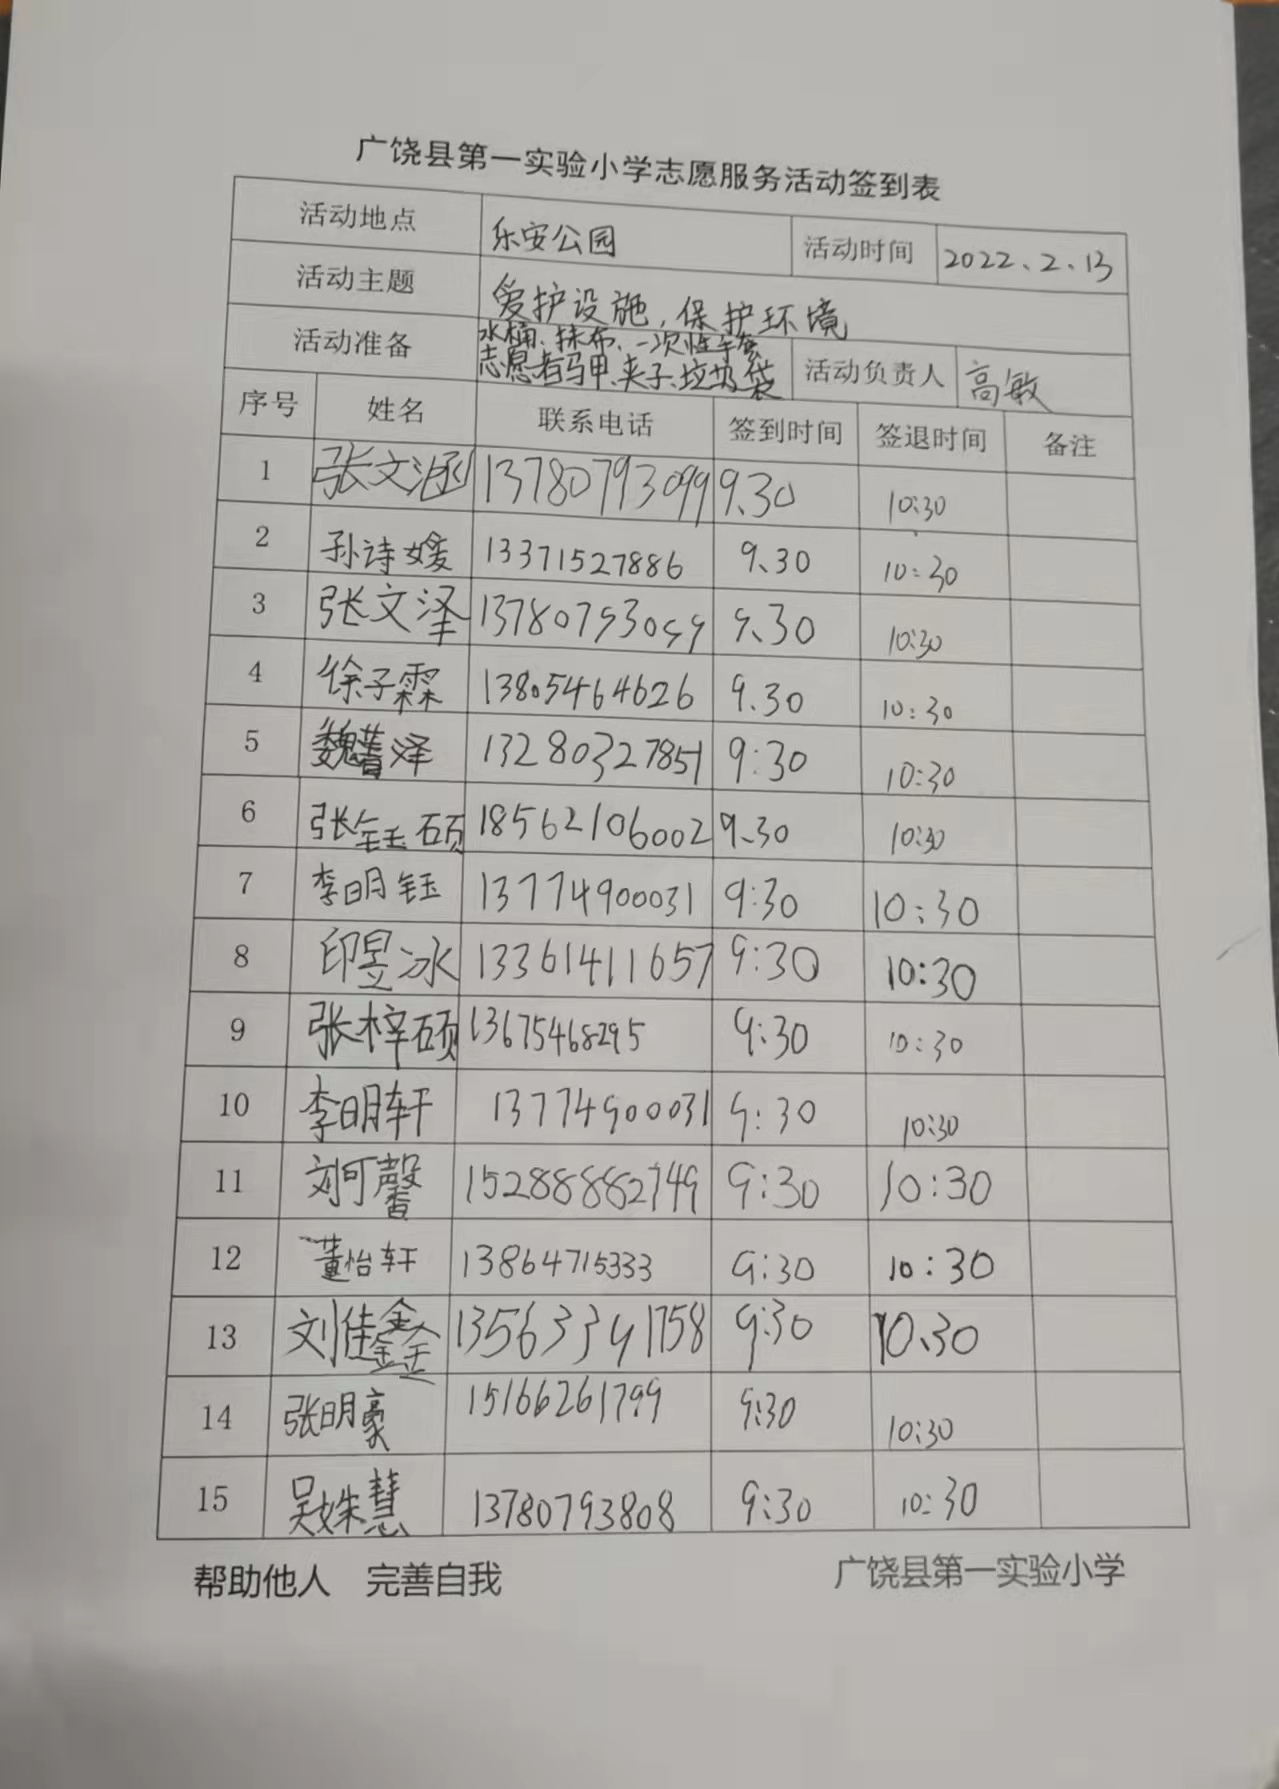 广饶县第一实验小学志愿服务活动签到表
活动地点 乐安公园 活动时间 2022.2.13
活动主题 爱护设施,保护环境
活动准备 水桶、抹布、一次性手套 志愿者马甲、夹子、垃圾袋 活动负责人 高敏
序号 姓名 联系电话 签到时间 签退时间 备注
1 张文涵 13780793099 9.30 10:30
2 孙诗媛 13371527886 9.30 10:30
3 张文泽 13780793099 9.30 10:30
4 徐子霖 13805464626 9.30 10:30
5 魏菖泽 13280327851 9:30 10:30
6 张钰硕 18562106002 9.30 10:30
7 李明钰 13774900031 9:30 10:30
8 印昱冰 13361411657 9:30 10:30
9 张梓硕 13675468295 9:30 10:30
10 李明轩 13774900031 9:30 10:30
11 刘可馨 15288882749 9:30 10:30
12 董怡轩 13864715333 9:30 10:30
13 刘佳鑫 13563391758 9:30 10.30
14 张明豪 15166261799 9:30 10:30
15 吴姝慧 13780793808 9:30 10:30
帮助他人 完善自我 广饶县第一实验小学